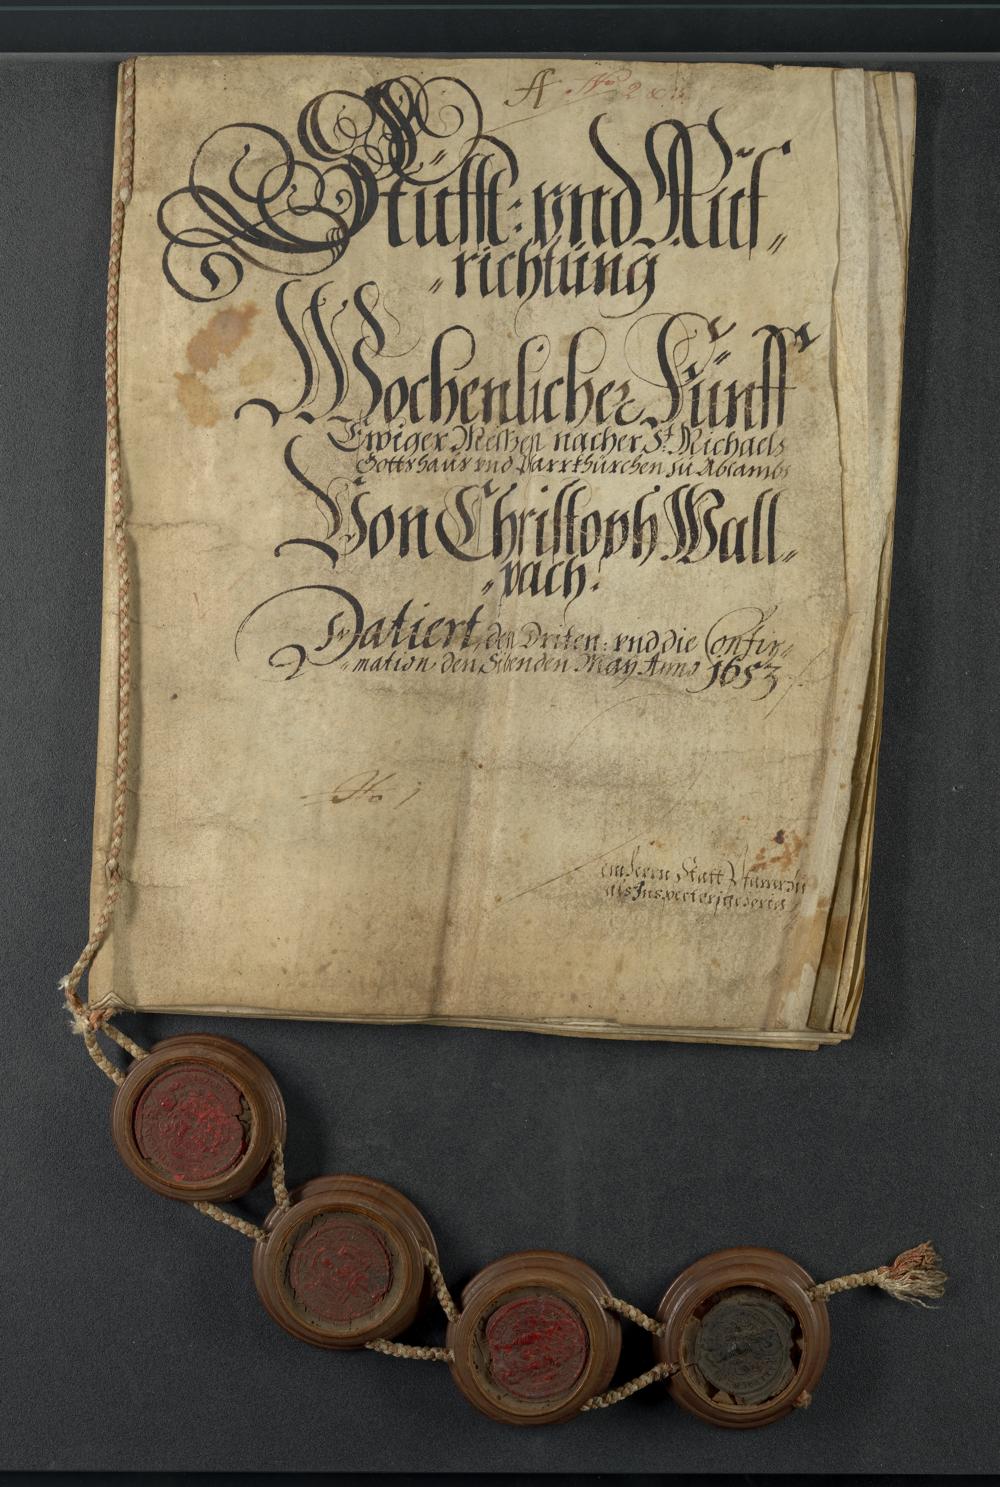 A No 2
Stüfft: vnd Auf„
„richtüng
Wochenlicher Fünff
Ewiger Messen nacher St. Michaels
Gottshaus vnd Pfarrkhürchen zu Absambs
Von Christoph Wall„
„pach:
Datiert, den Driten: vnd die Confir„
„mation, den Sibenden May Anno 1653
No 1
em herrn Statt Pfarrer zu
als Inspectori gehörig